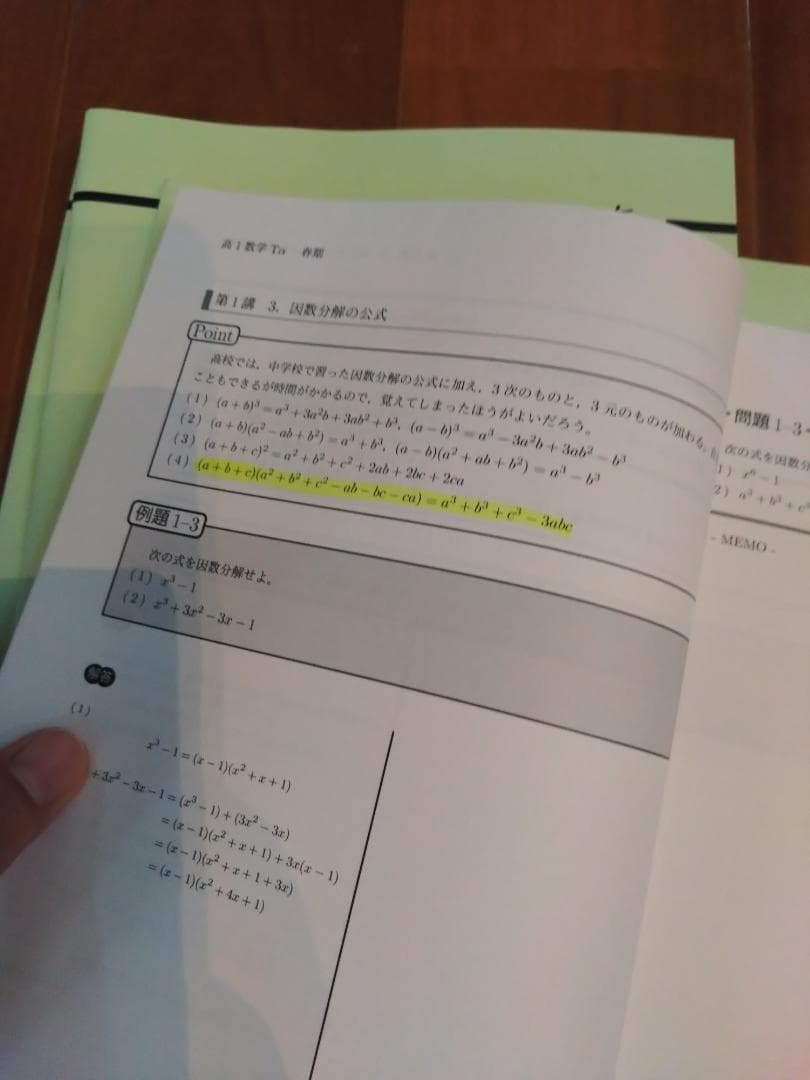 高1数学Tα 春期
第1講 3. 因数分解の公式
Point
高校では，中学校で習った因数分解の公式に加え，3次のものと，3元のものが加わる。
こともできるが時間がかかるので，覚えてしまったほうがよいだろう。
(1) (a+b)³=a³+3a²b+3ab²+b³, (a−b)³=a³−3a²b+3ab²−b³
(2) (a+b)(a²−ab+b²)=a³+b³, (a−b)(a²+ab+b²)=a³−b³
(3) (a+b+c)²=a²+b²+c²+2ab+2bc+2ca
(4) (a+b+c)(a²+b²+c²−ab−bc−ca)=a³+b³+c³−3abc
例題1-3
次の式を因数分解せよ。
(1) x³−1
(2) x³+3x²−3x−1
解答
(1)
x³−1=(x−1)(x²+x+1)
+3x²−3x−1=(x³−1)+(3x²−3x)
=(x−1)(x²+x+1)+3x(x−1)
=(x−1)(x²+x+1+3x)
=(x−1)(x²+4x+1)
問題1-3
次の式を因数分
1) x⁶−1
2) a³+b³+c³
- MEMO -